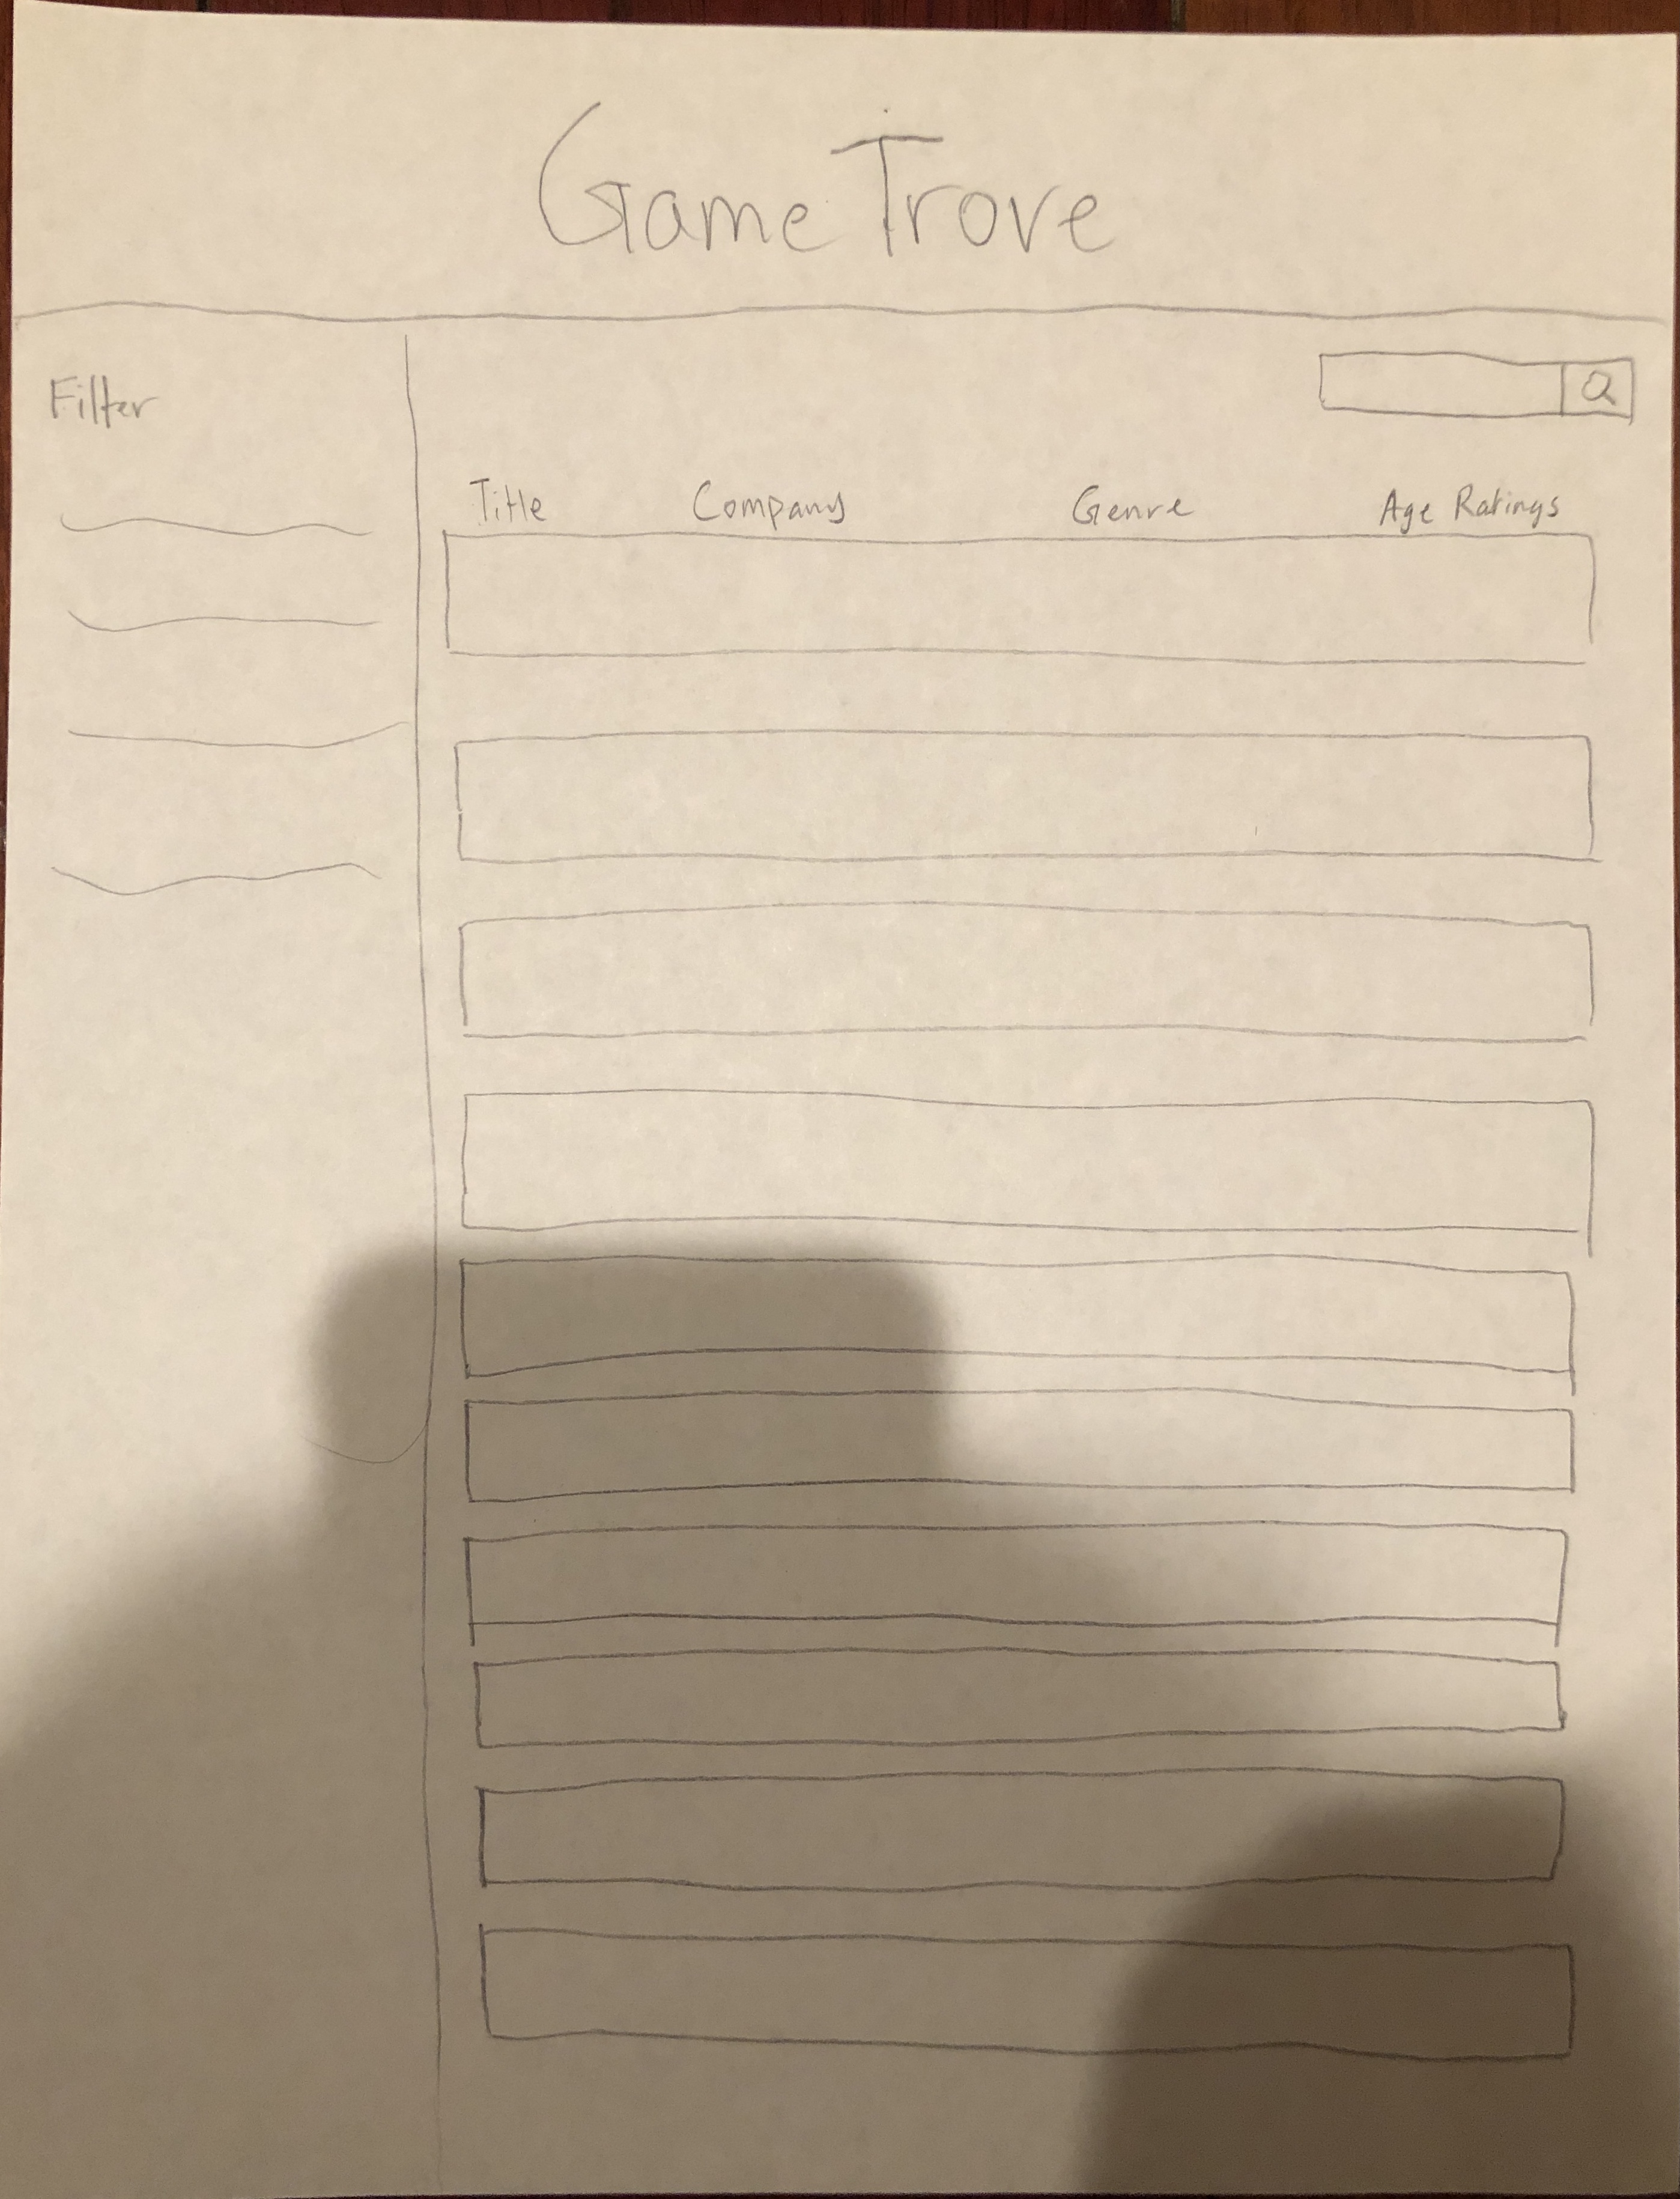 Game Trove
Filter
Title Company Genre Age Ratings